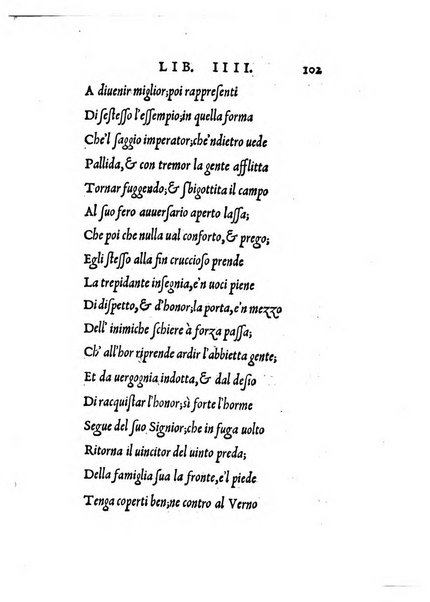 LIB. IIII. 102
A diuenir miglior; poi rappresenti
Di sestesso l'essempio; in quella forma
Che'l saggio imperator; che'ndietro uede
Pallida, & con tremor la gente afflitta
Tornar fuggendo; & sbigottita il campo
Al suo fero auuersario aperto lassa;
Che poi che nulla ual conforto, & prego;
Egli stesso alla fin cruccioso prende
La trepidante insegnia, e'n uoci piene
Di dispetto, & d'honor; la porta, e'n mezzo
Dell' inimiche schiere à forza passa;
Ch' all'hor riprende ardir l'abbietta gente;
Et da uergognia indotta, & dal desio
Di racquistar l'honor; sì forte l'horme
Segue del suo Signior; che in fuga uolto
Ritorna il uincitor del uinto preda;
Della famiglia sua la fronte, e'l piede
Tenga coperti ben; ne contro al Verno